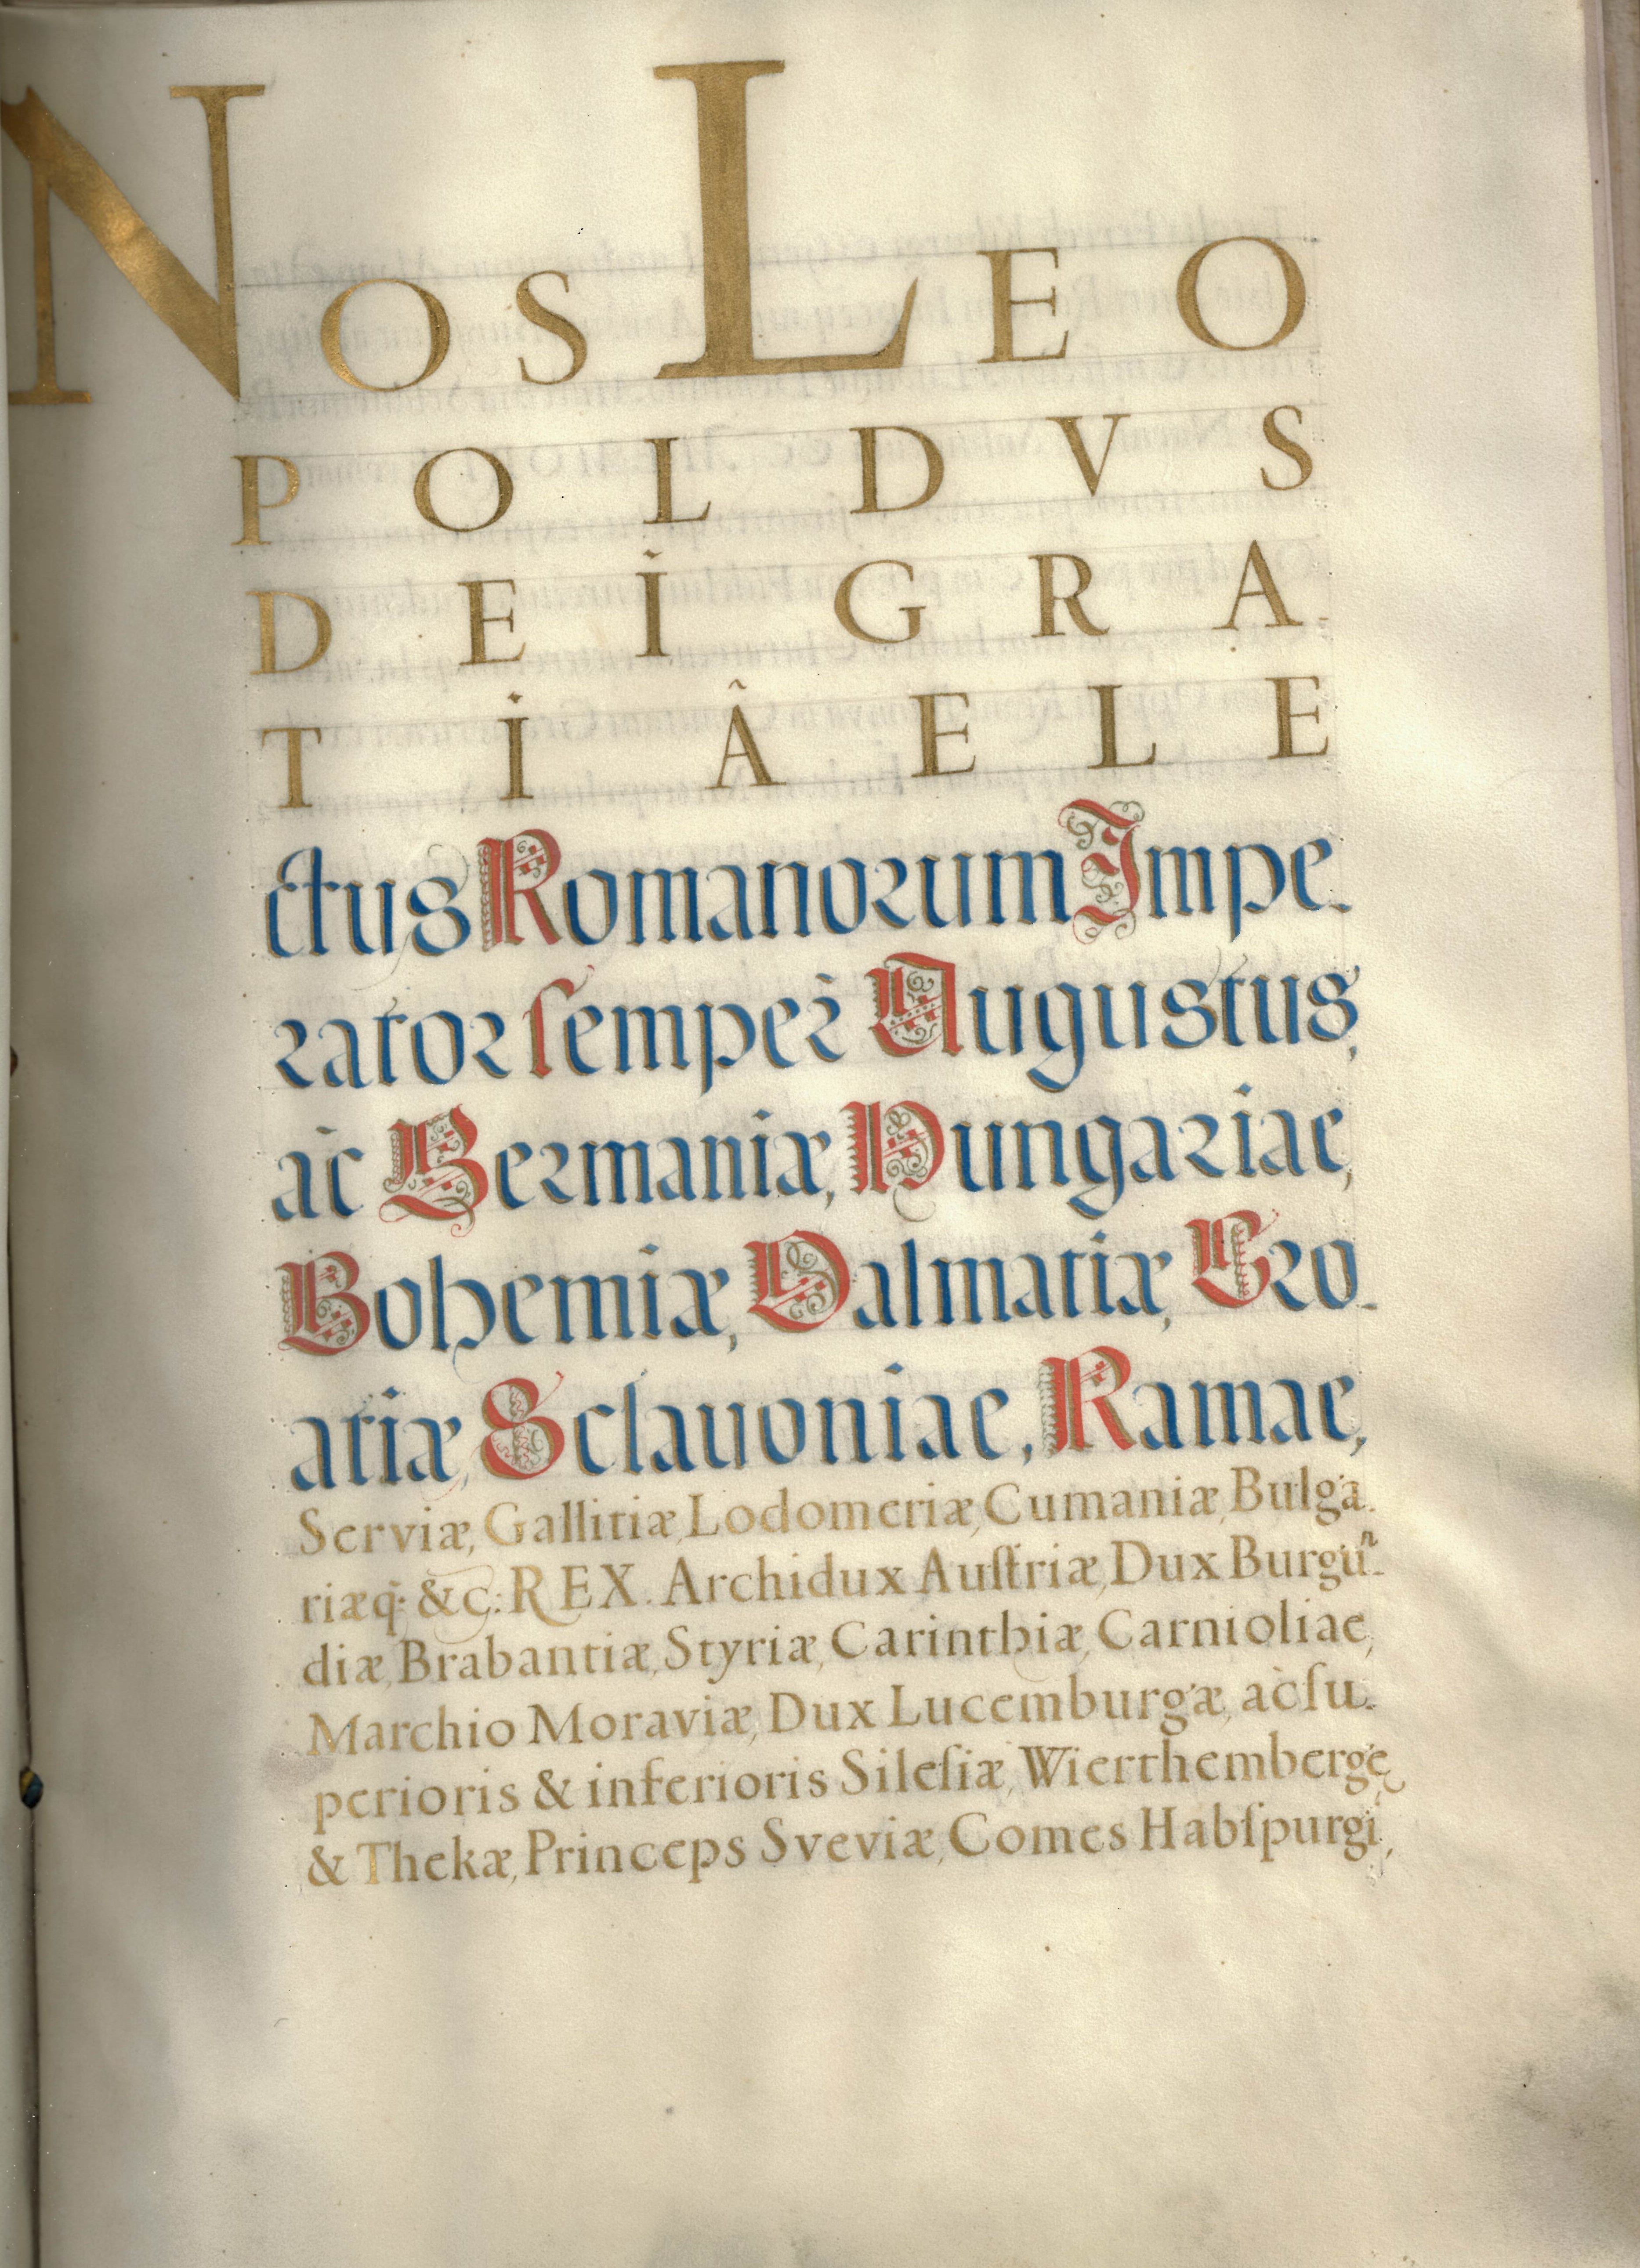 NOS LEO
POLDVS
DEI GRA
TIÂ ELE
ctus Romanorum Impe-
rator ſemper Augustus,
ac Germaniæ, Hungariae,
Bohemiæ, Dalmatiæ, Cro-
atiæ, Sclavoniae, Ramae,
Serviæ, Gallitiæ, Lodomeriæ, Cumaniæ, Bulga-
riæq; &c: REX. Archidux Auſtriæ, Dux Burgũ-
diæ, Brabantiæ, Styriæ, Carinthiæ, Carnioliae,
Marchio Moraviæ, Dux Lucemburgæ, ac ſu-
perioris & inferioris Sileſiæ, Wierthembergę
& Thekæ, Princeps Sveviæ, Comes Habſpurgi,